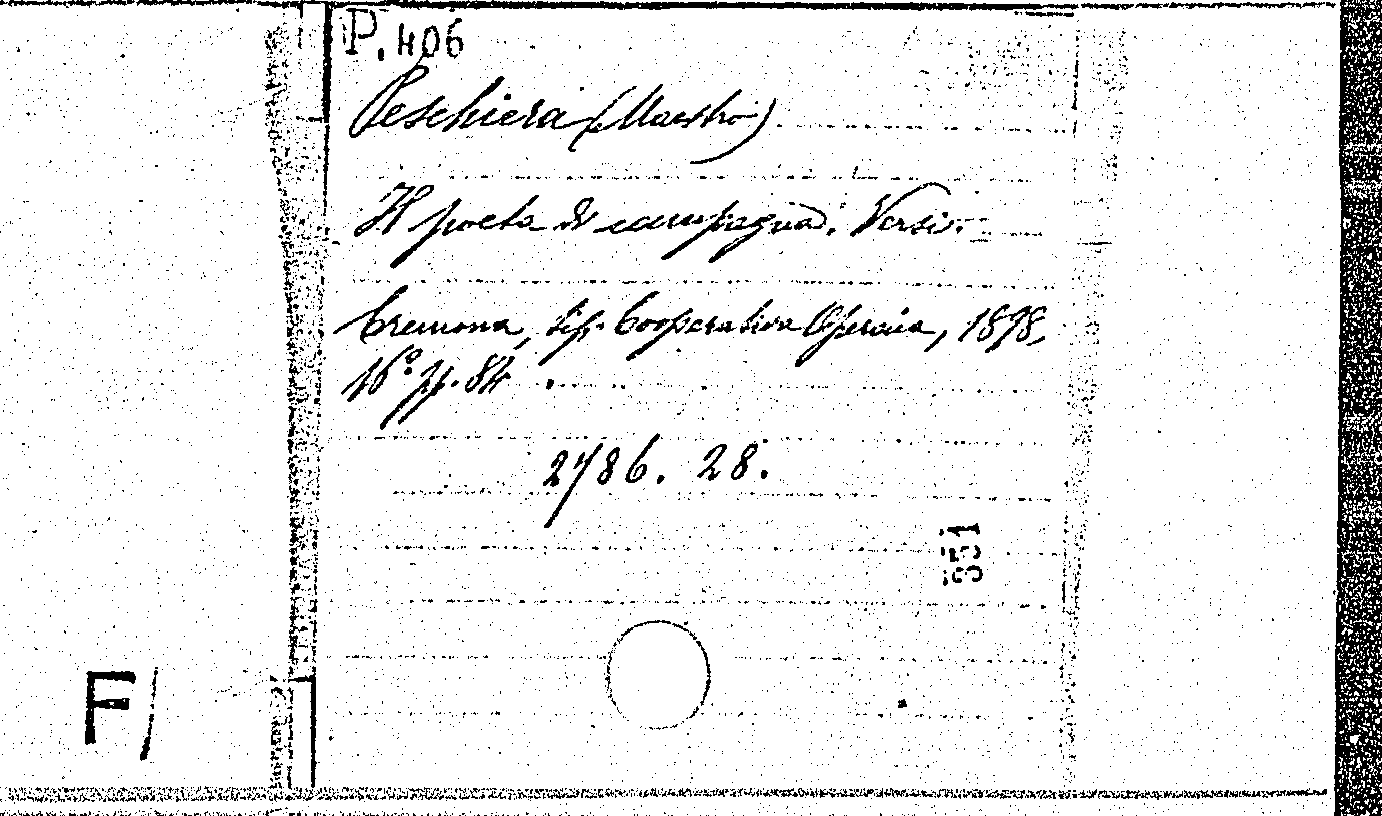 P. 406
Peschiera (Maestro)
Il poeta di campagna. Versi.
Cremona, tip. Cooperativa Operaia, 1898,
16° pp. 84.
2786. 28.
551
F/